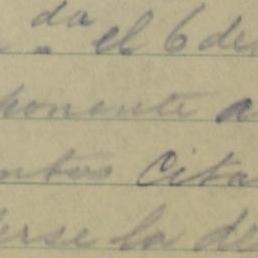 da el 6 de
ponente a
ntos Cita
erse la de